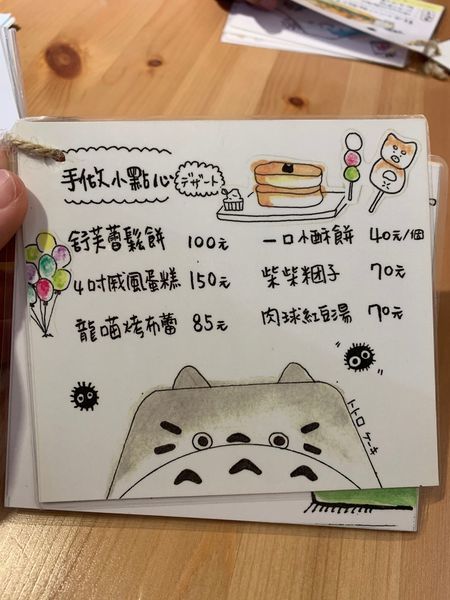 手做小點心
デザート
舒芙蕾鬆餅 100元
4吋戚風蛋糕 150元
龍喵烤布蕾 85元
一口小酥餅 40元/個
柴柴糰子 70元
肉球紅豆湯 70元
トトロ
ケーキ